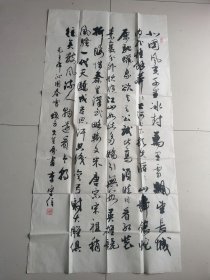 北国风光千里冰封万里雪飘望长城
内外惟余莽莽大河上下顿失滔滔山舞银蛇
原驰蜡象欲与天公试比高须晴日看红装
素裹分外妖娆江山如此多娇引无数英雄竞
折腰惜秦皇汉武略输文采唐宗宋祖稍逊
风骚一代天骄成吉思汗只识弯弓射大雕俱
往矣数风流人物还看今朝
毛主席沁园春雪